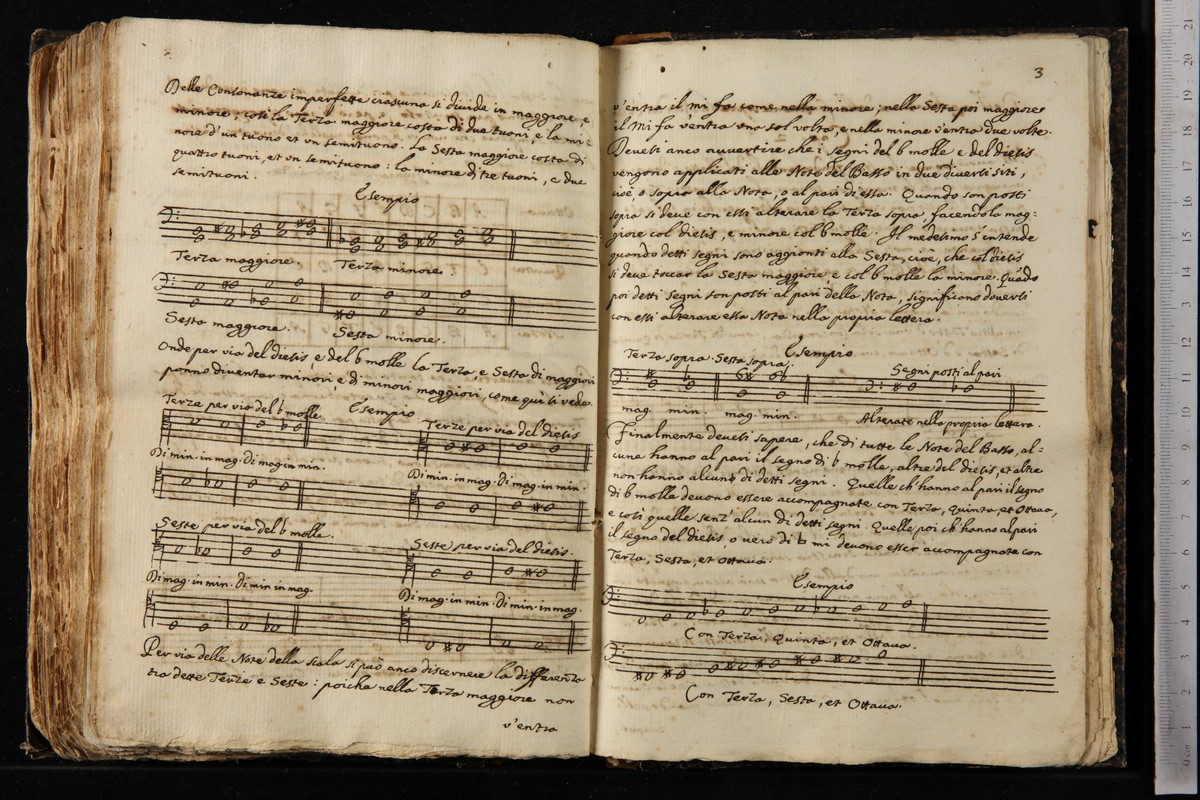 Delle Consonanze imperfette ciascuna si divide in maggiore e
minore; così la Terza maggiore costa di due tuoni, e la mi-
nore d'un tuono et un semituono. La Sesta maggiore costa di
quattro tuoni, et un semituono: la minore di tre tuoni, e due
semituoni.
Esempio
Terza maggiore. Terza minore.
Sesta maggiore. Sesta minore.
Onde per via del diesis, e del b molle la Terza, e Sesta di maggiori
ponno diventar minori, e di minori maggiori, come quì si vede.
Esempio
Terze per via del b molle
Terze per via del diesis
Di min. in mag. Di mag. in min.
Di min. in mag. Di mag. in min.
Seste per via del b molle.
Seste per via del diesis.
Di mag. in min. Di min in mag.
Di mag. in min. Di min. in mag.
Per via delle Note della scala si può anco discernere la differenza
tra dette Terze e Seste: poiche nella Terza maggiore non
v'entra
3
v'entra il mi fa come nella minore; nella Sesta poi maggiore
il Mi fa v'entra una sol volta, e nella minore v'entra due volte.
Devesi anco avvertire che i segni del b molle e del diesis
vengono applicati alle Note del Basso in due diversi siti,
cioè, o sopra alla Nota, o al pari di essa. Quando son posti
sopra si deve con essi alterare la Terza sopra, facendola mag:
giore col diesis, e minore col b molle. Il medesimo s'intende
quando detti segni sono aggionti alla Sesta, cioè, che col diesis
si deve toccar la Sesta maggiore, e col b molle la minore. Quãdo
poi detti segni son posti al pari della Nota, significano doversi
con essi alterare essa Nota nella propria lettera.
Esempio
Terza sopra. Sesta sopra.
Segni posti al pari
6 6
mag. min. mag. min.
Alterate nella propria lettera.
Finalmente devesi sapere, che di tutte le Note del Basso, al=
cune hanno al pari il segno di b molle, altre del diesis, et altre
non hanno alcuno di detti segni. Quelle ch'hanno al pari il segno
di b molle devono essere accompagnate con Terza, Quinta et Ottava,
e così quelle senz'alcun di detti segni. Quelle poi ch'hanno al pari
il segno del diesis, o vero di ♮ mi devono esser accompagnate con
Terza, Sesta, et Ottava.
Esempio
Con Terza, Quinta, et Ottava.
Con Terza, Sesta, et Ottava.